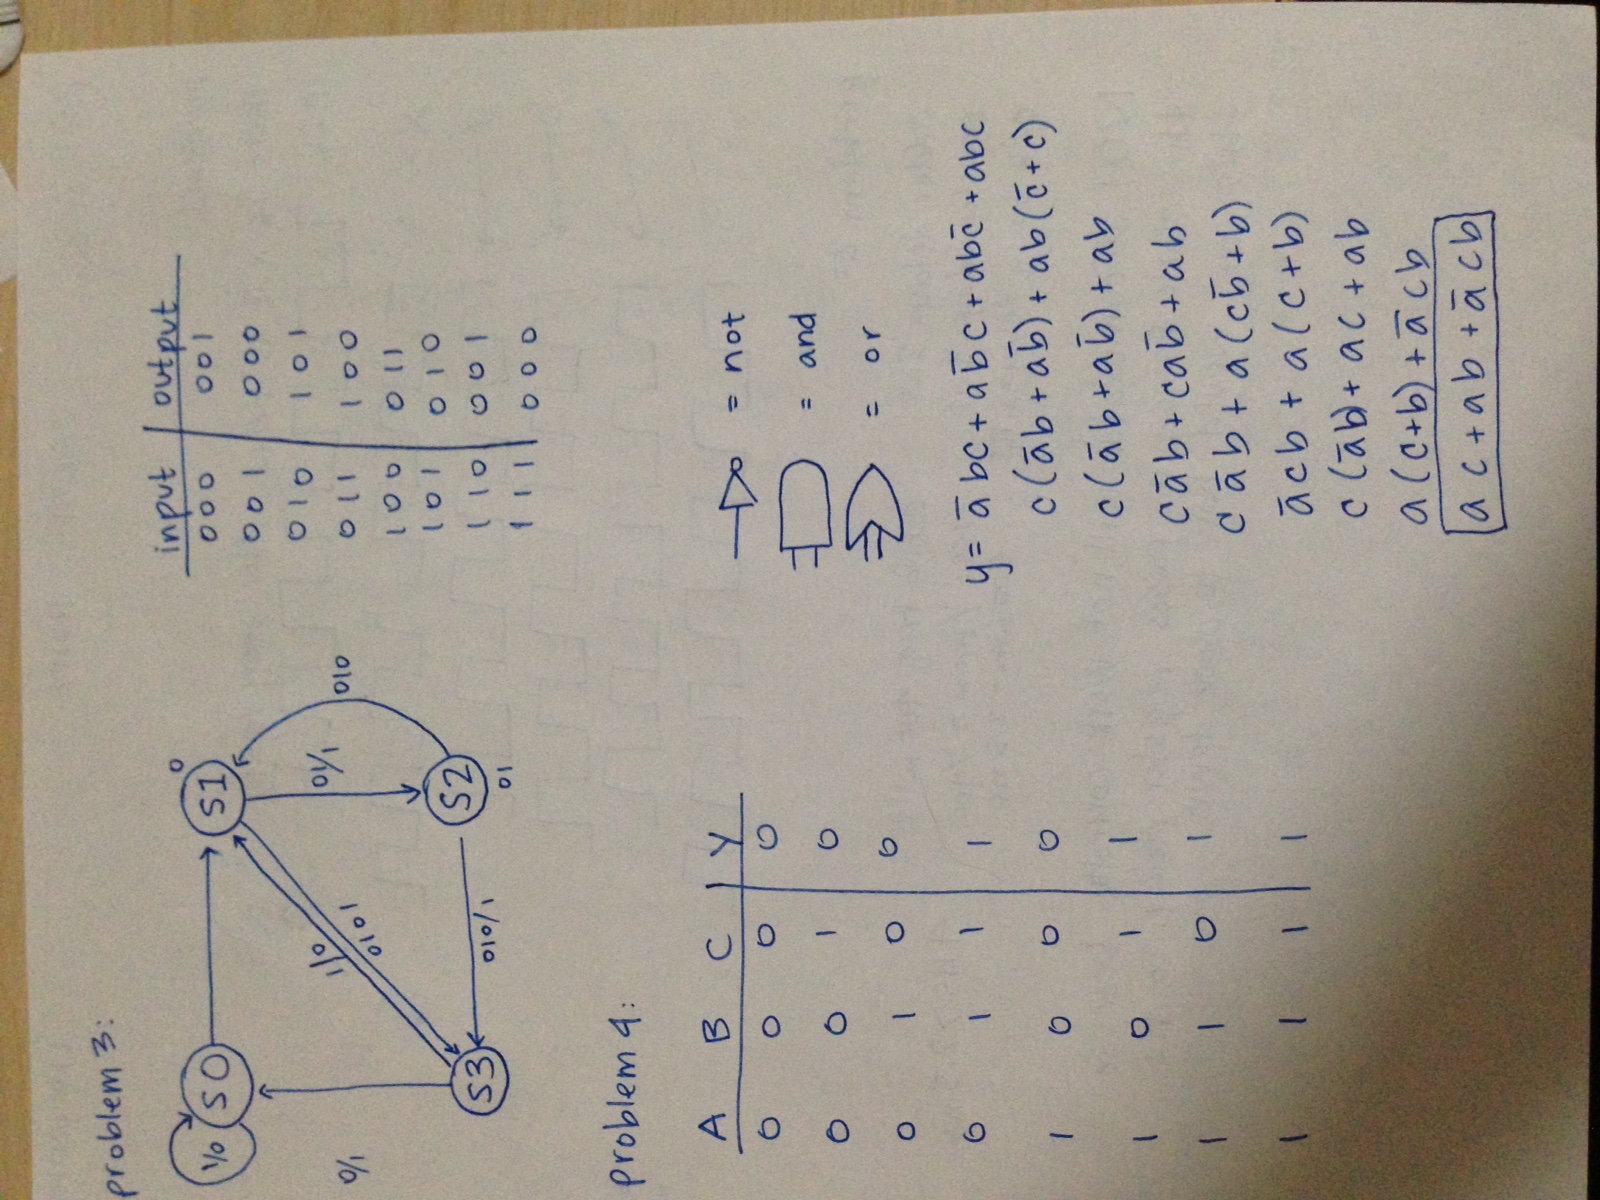 problem 3:
1/0 S0
S1 0
0/1
1/0
0101
01/1
010
S3
010/1
S2
01
input output
000 001
001 000
010 101
011 100
100 011
101 010
110 001
111 000
problem 4:
A B C Y
0 0 0 0
0 0 1 0
0 1 0 0
0 1 1 1
1 0 0 0
1 0 1 1
1 1 0 1
1 1 1 1
= not
= and
= or
y = a̅bc + ab̅c + abc̅ + abc
c(a̅b + ab̅) + ab(c̅ + c)
c(a̅b + ab̅) + ab
ca̅b + cab̅ + ab
ca̅b + a(cb̅ + b)
a̅cb + a(c + b)
c(a̅b) + ac + ab
a(c + b) + a̅cb
ac + ab + a̅cb